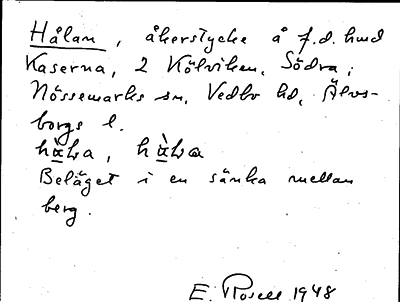 Hålan, åkerstycke å f.d. hmd
Kaserna, 2 Kölviken, Södra,
Nössemarks sn, Vedbo hd, Älvs-
borgs l.
Beläget i en sänka mellan
berg.
E. Rosell 1948